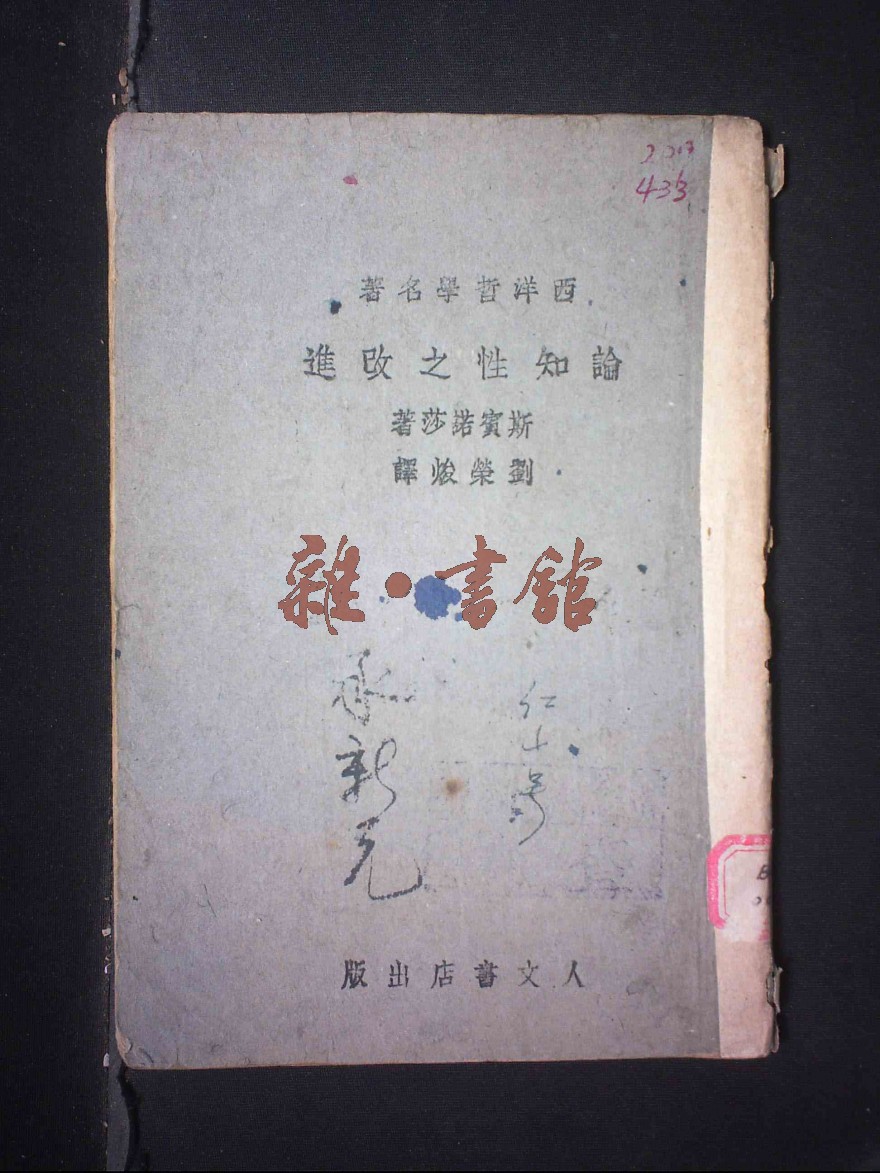 433
西洋哲學名著
論知性之改進
斯賓諾莎著
劉榮焌譯
雜·書館
仁山号
承新元
人文書店出版